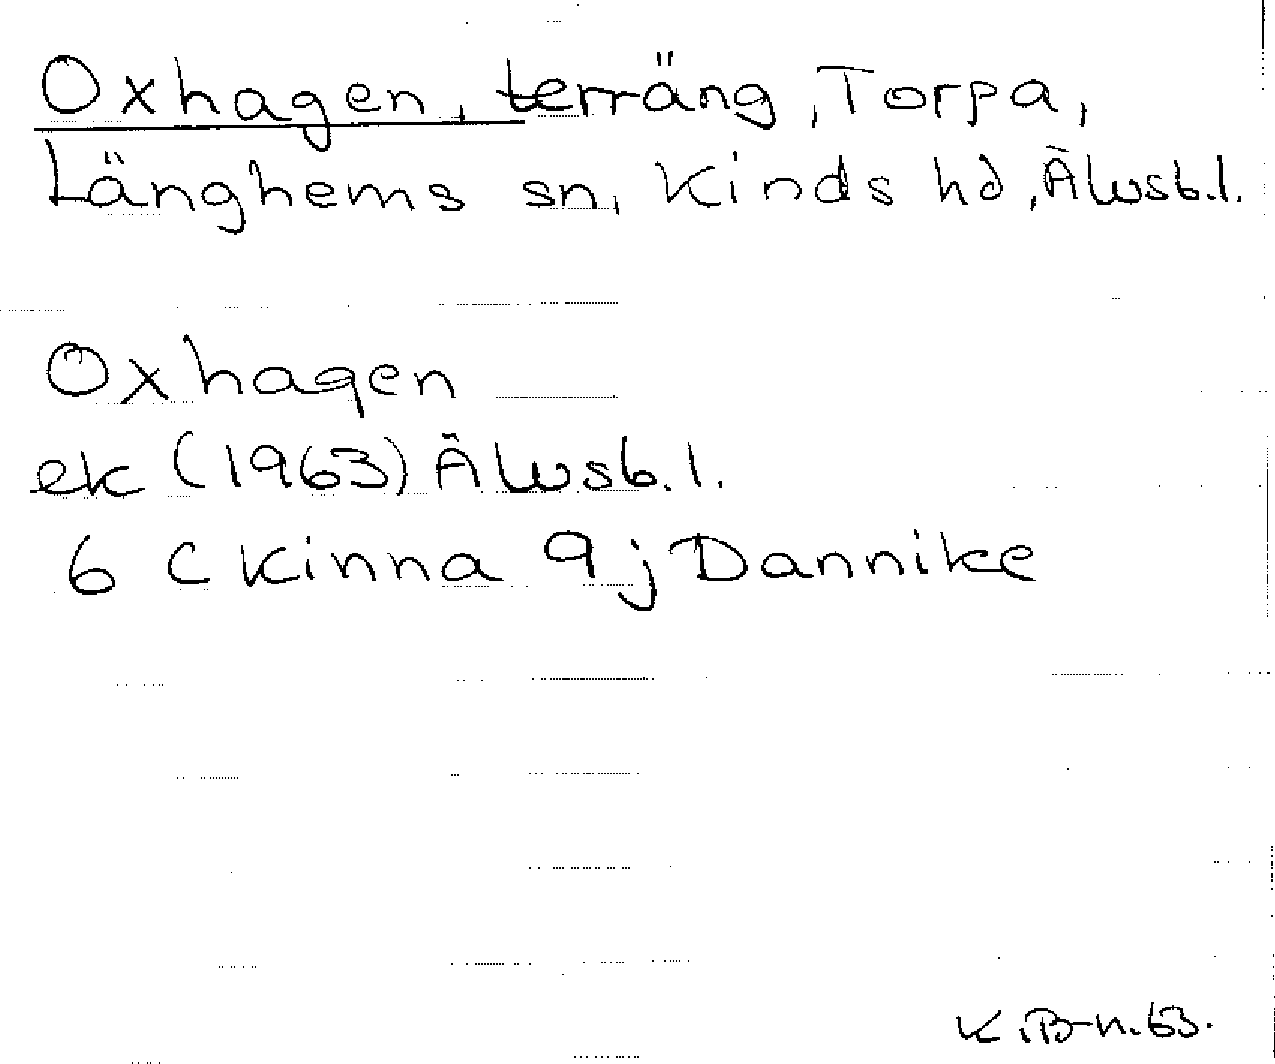 Oxhagen, terräng, Torpa,
Länghems sn, Kinds hd, Älvsb.l.
Oxhagen
ek (1963) Älvsb.l.
6 C Kinna 9 j Dannike
K.B-n. 63.